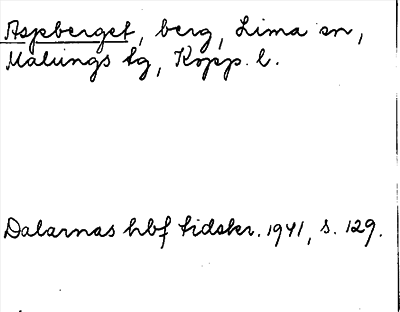 Aspberget, berg, Lima sn,
Malungs tg, Kopp. l.
Dalarnas hbf tidskr. 1941, s. 129.